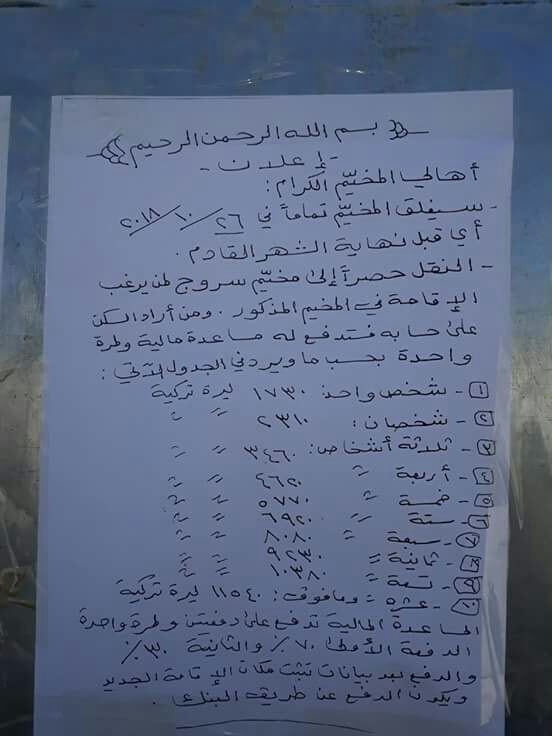 بسم الله الرحمن الرحيم
- إعلان -
أهالي المخيّم الكرام:
- سيغلق المخيّم تماماً في ٢٦/١٠/٢٠١٨
أي قبل نهاية الشهر القادم.
- النقل حصراً إلى مخيّم سروج لمن يرغب
الإقامة في المخيم المذكور. ومن أراد السكن
على حسابه فستدفع له مساعدة مالية ولمرة
واحدة بحسب ما ويرد في الجدول الآتي:
١- شخص واحد ١٧٣٠ ليرة تركية
٢- شخصان: ٢٣١٠ " "
٣- ثلاثة أشخاص: ٣٤٦٠ " "
٤- أربعة " ٤٦٢٠ " "
٥- خمسة " ٥٧٧٠ " "
٦- ستة " ٦٩٢٠ " "
٧- سبعة " ٨٠٨٠ " "
٨- ثمانية " ٩٢٣٠ " "
٩- تسعة " ١٠٣٨٠ " "
١٠- عشرة " ومافوق: ١١٥٤٠ ليرة تركية
المساعدة المالية تدفع على دفعتين ولمرة واحدة
الدفعة الأولى ٧٠٪ والثانية ٣٠٪
والدفع بعد بيانات تثبت مكان الإقامة الجديد
ويكون الدفع عن طريق البنك.